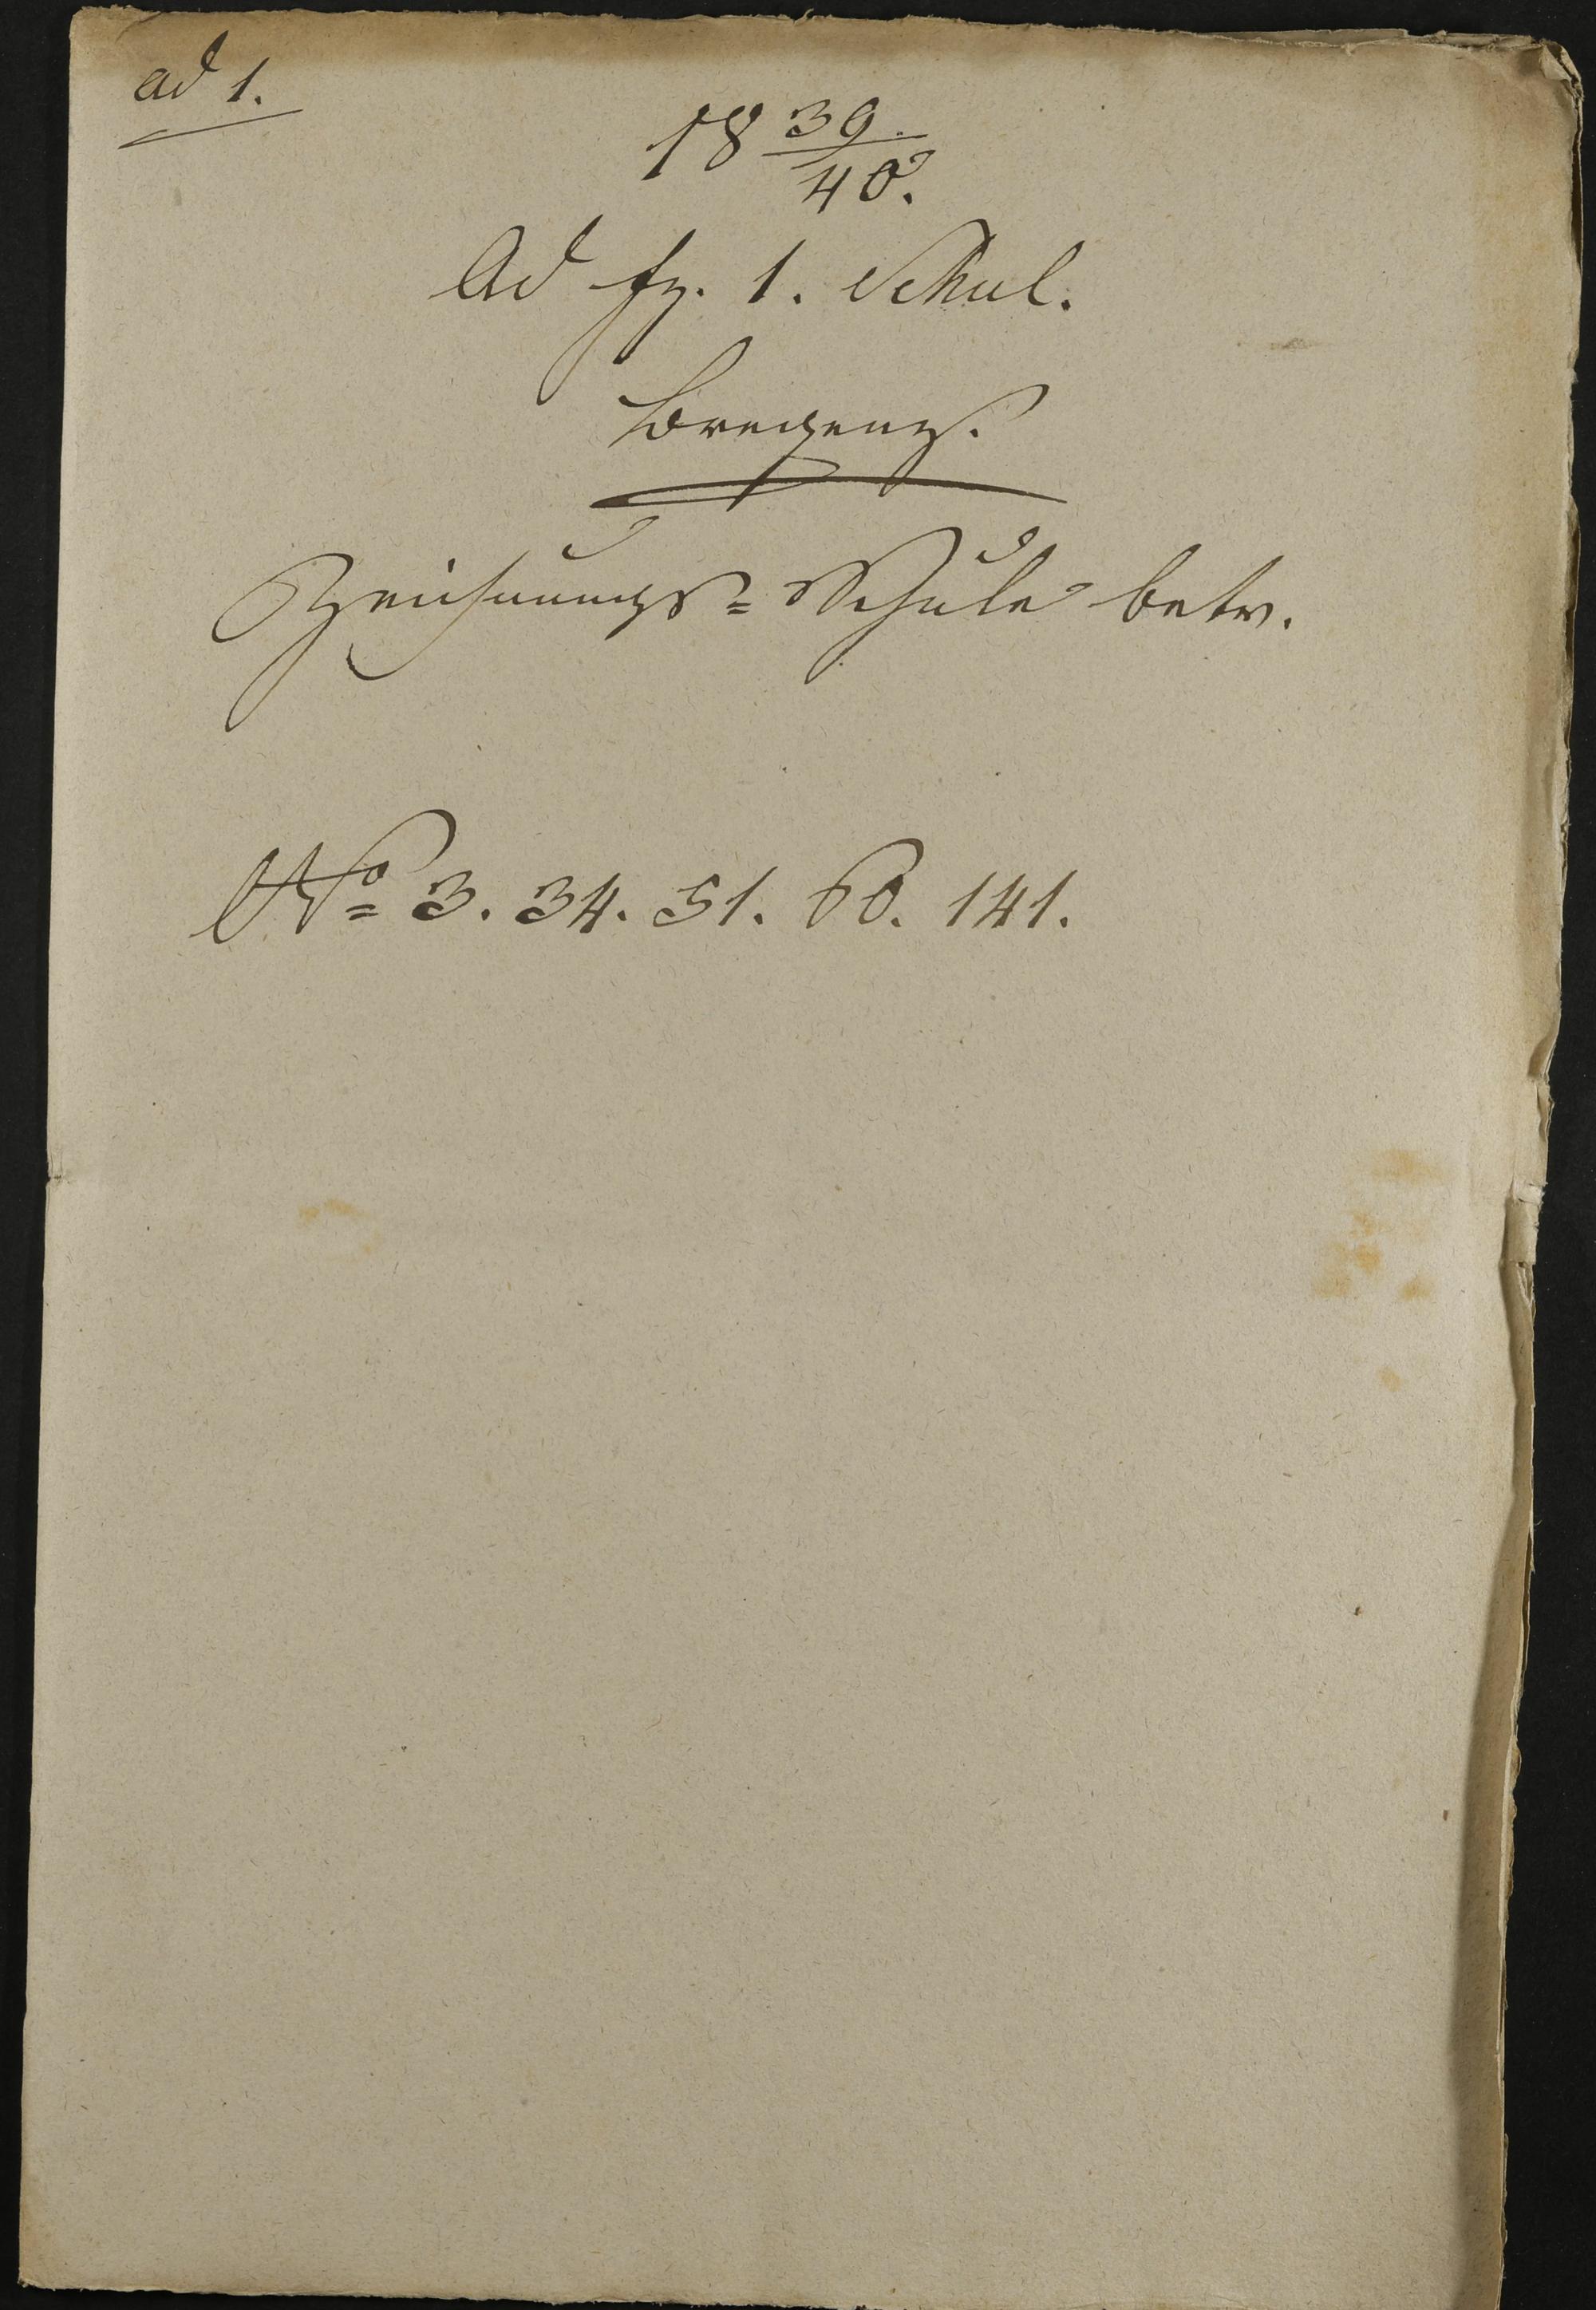 ad 1.
18 39/40.
Ad fz. 1. Schul.
Bregenz.
Zeichnungs= Schule betr.
No 3. 34. 51. 60. 141.